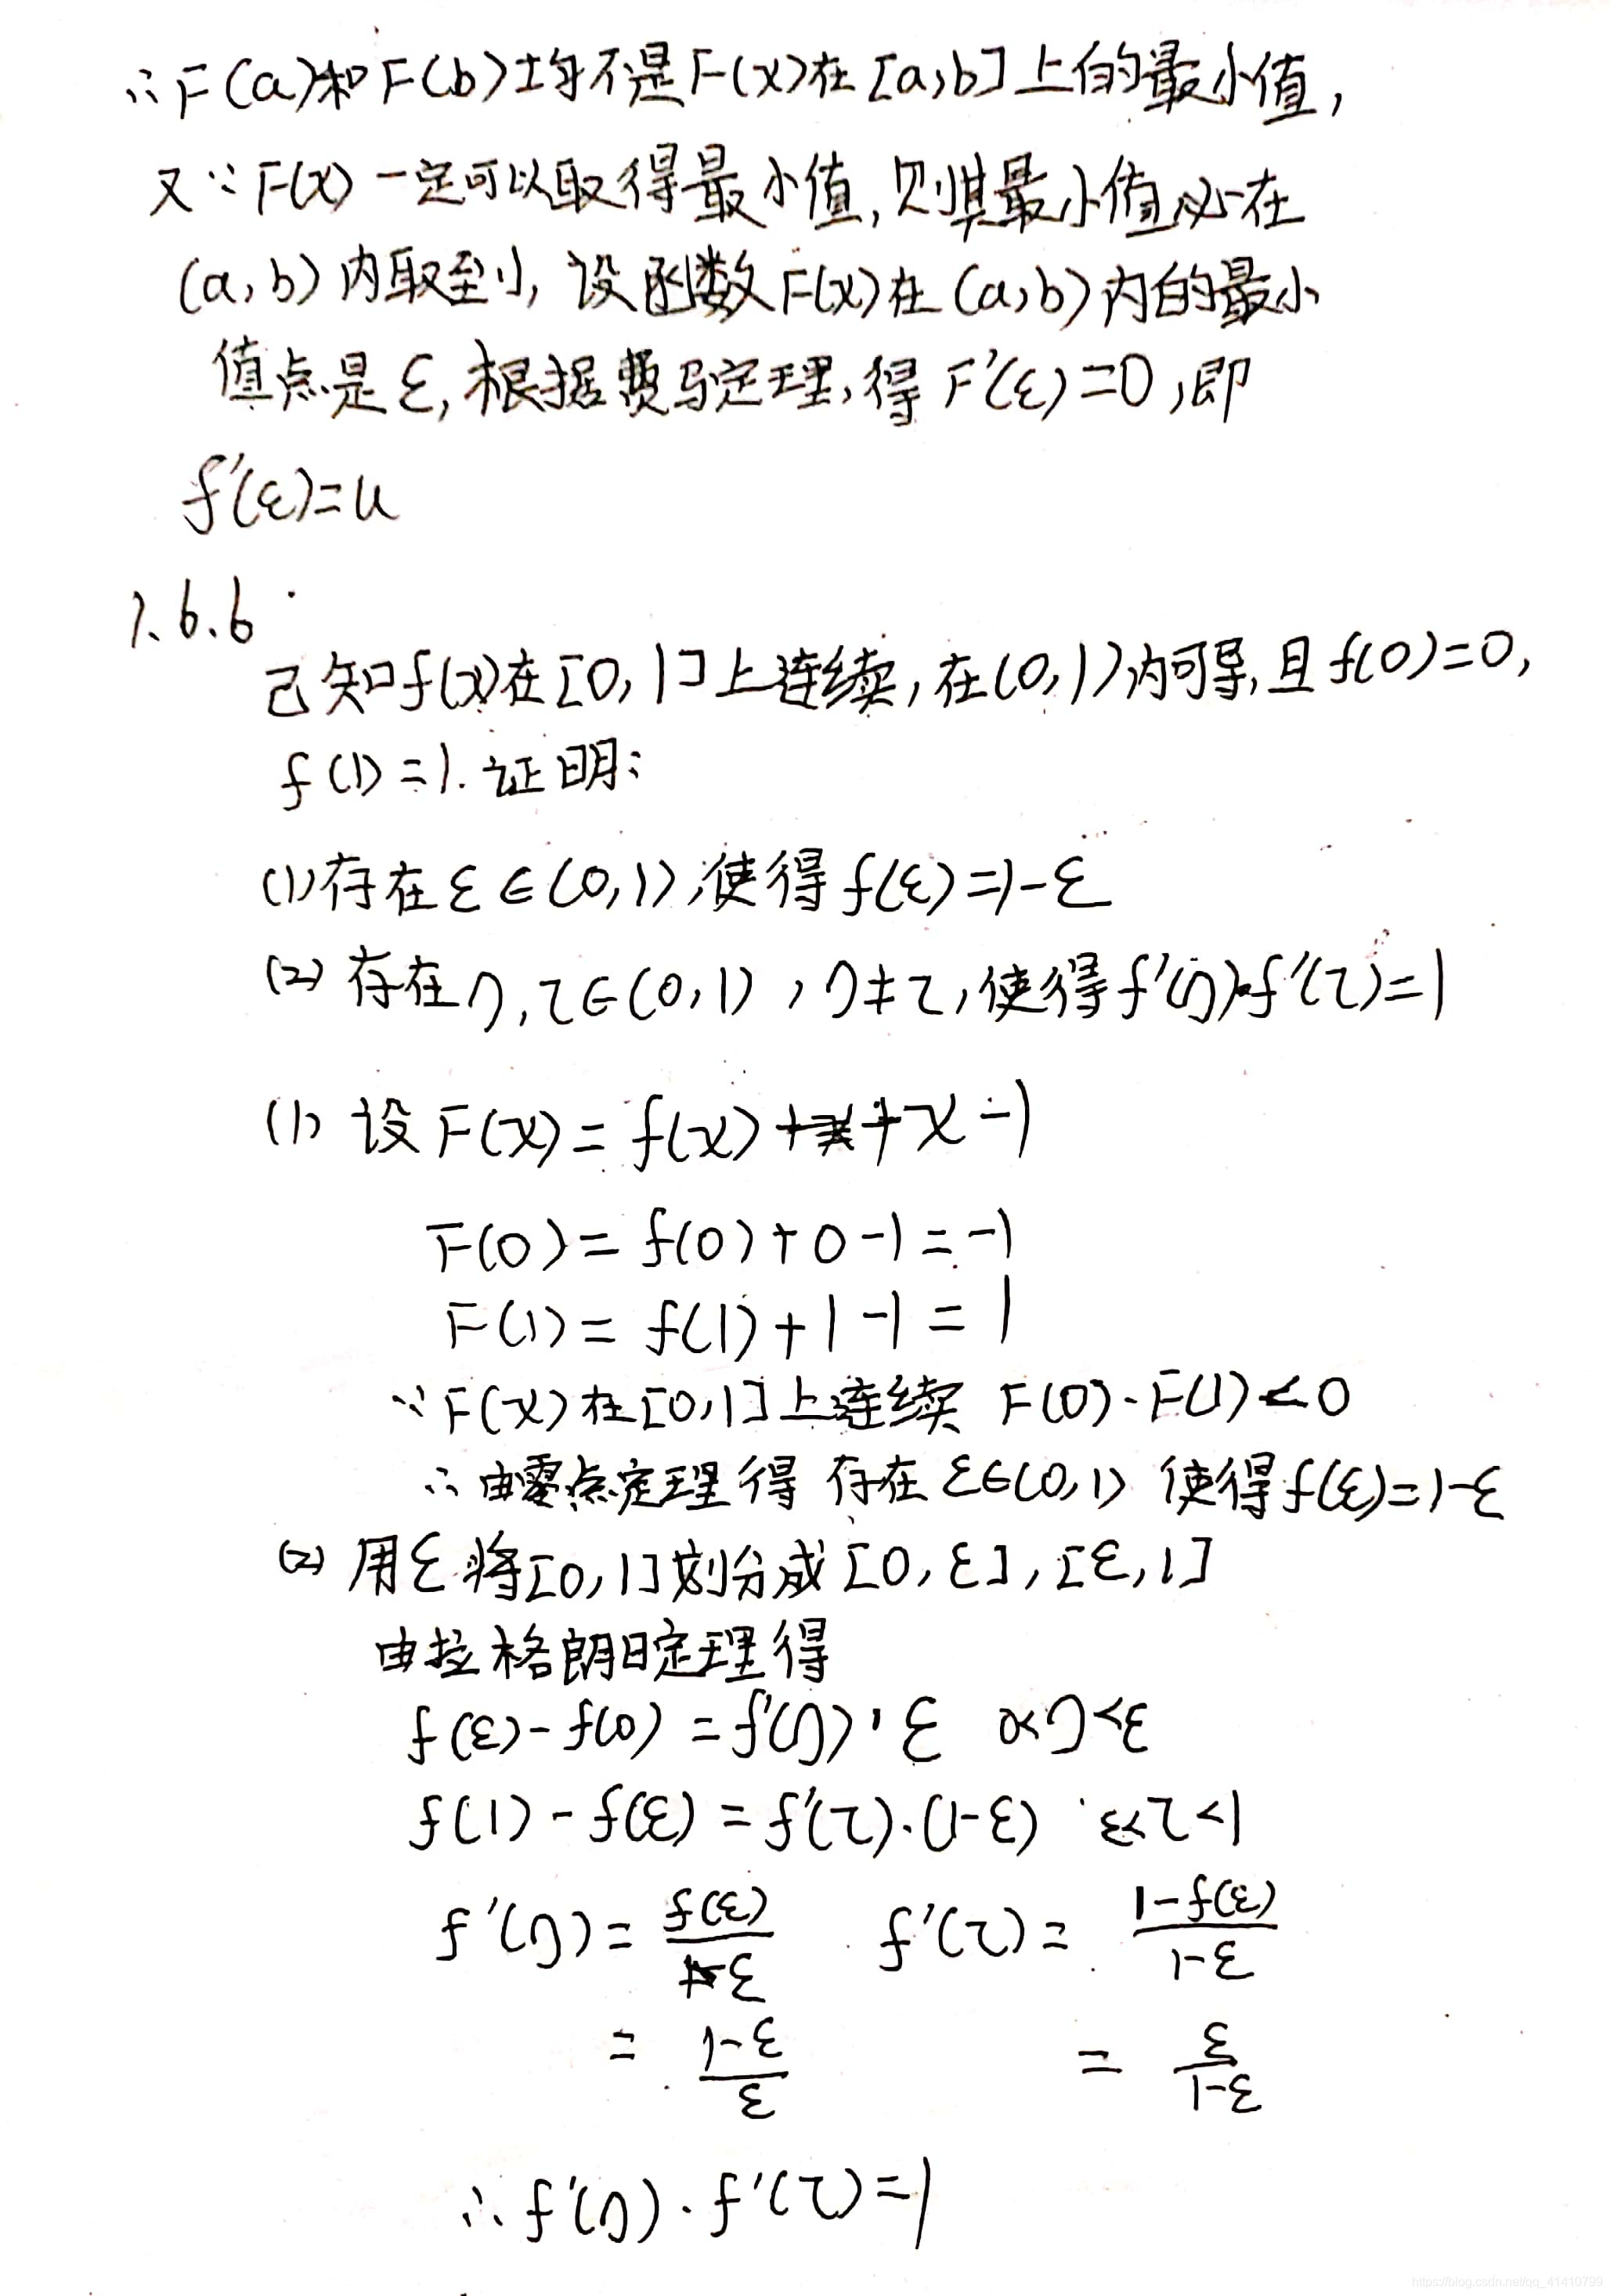 ∴F(a)和F(b)均不是F(x)在[a,b]上的最小值,
又∵F(x)一定可以取得最小值,则其最小值必在
(a,b)内取到,设函数F(x)在(a,b)内的最小
值点是ε,根据费马定理,得F′(ε)=0,即
f′(ε)=u
1.6.6
已知f(x)在[0,1]上连续,在(0,1)内可导,且f(0)=0,
f(1)=1.证明:
(1)存在ε∈(0,1),使得f(ε)=1-ε
(2)存在η,τ∈(0,1),η≠τ,使得f′(η)·f′(τ)=1
(1)设F(x)=f(x)+x-1
F(0)=f(0)+0-1=-1
F(1)=f(1)+1-1=1
∵F(x)在[0,1]上连续 F(0)·F(1)<0
∴由零点定理得 存在ε∈(0,1) 使得f(ε)=1-ε
(2)用ε将[0,1]划分成[0,ε],[ε,1]
由拉格朗日定理得
f(ε)-f(0)=f′(η)·ε 0<η<ε
f(1)-f(ε)=f′(τ)·(1-ε) ε<τ<1
f′(η)=f(ε)/ε f′(τ)=(1-f(ε))/(1-ε)
=(1-ε)/ε =ε/(1-ε)
∴f′(η)·f′(τ)=1
https://blog.csdn.net/qq_41410799